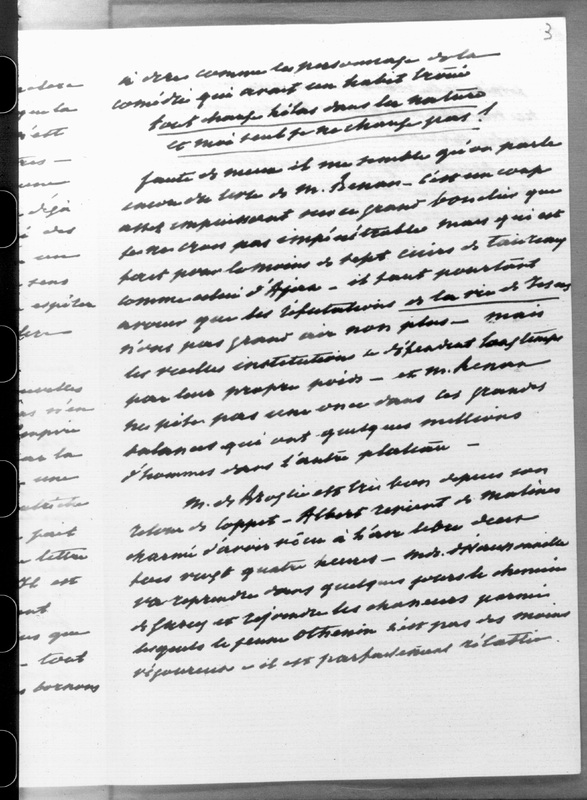 3
à dire comme le personnage de la
comédie qui avait un habit troué
tout change hélas dans la nature
et moi seul je ne change pas !
faute de mieux il me semble qu'on parle
encore du livre de M. Renan – c'est un coup
assez impuissant sur ce grand bouclier que
je ne crois pas impénétrable mais qui est
fait pour le moins de sept cuirs de taureau
comme celui d'Ajax – il faut pourtant
avouer que les réfutations de la vie de Jesus
n'ont pas grand air non plus – mais
les vieilles institutions se défendent longtemps
par leur propre poids – et M. Renan
ne pèse pas une once dans ces grandes
balances qui ont quelques millions
d'hommes dans l'autre plateau –
M. de Broglie est très bien depuis son
retour de Coppet – Albert revient de Malines
charmé d'avoir vécu à l'air libre
vingt quatre heures – Mde. d'Haussonville
va reprendre dans quelques jours le chemin
de Gurcy et rejoindre les chasseurs parmi
lesquels le jeune Othenin n'est pas des moins
vigoureux – il est parfaitement rétabli
que la
n'est
une
déjà
des
un
sens
espérer
n'en
par la
une
fait
lettre
Il est
que
tout
bornons